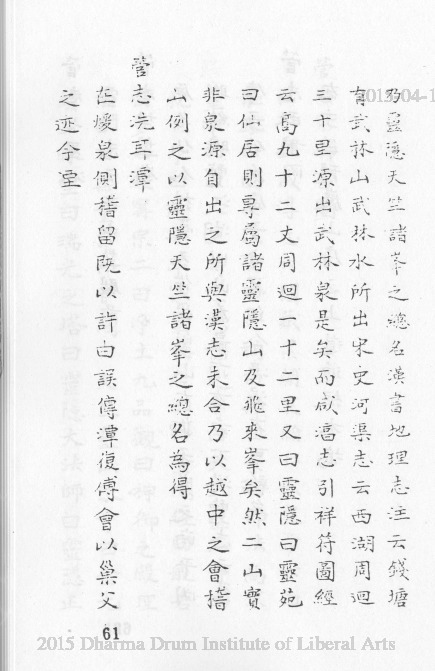 乃靈隱天竺諸峯之總名漢書地理志注云錢塘
有武林山武林水所出宋史河渠志云西湖周迴
三十里源出武林泉是矣而咸淳志引祥符圖經
云高九十二丈周迴一十二里又曰靈隱曰靈苑
曰仙居則專屬諸靈隱山及飛來峯矣然二山實
非泉源自出之所與漢志未合乃以越中之會稽
山例之以靈隱天竺諸峯之總名為得
舊志洗耳潭
在煖泉側稽留既以許由誤傳潭復傅會以巢父
之迹今湮
61
2015 Dharma Drum Institute of Liberal Arts